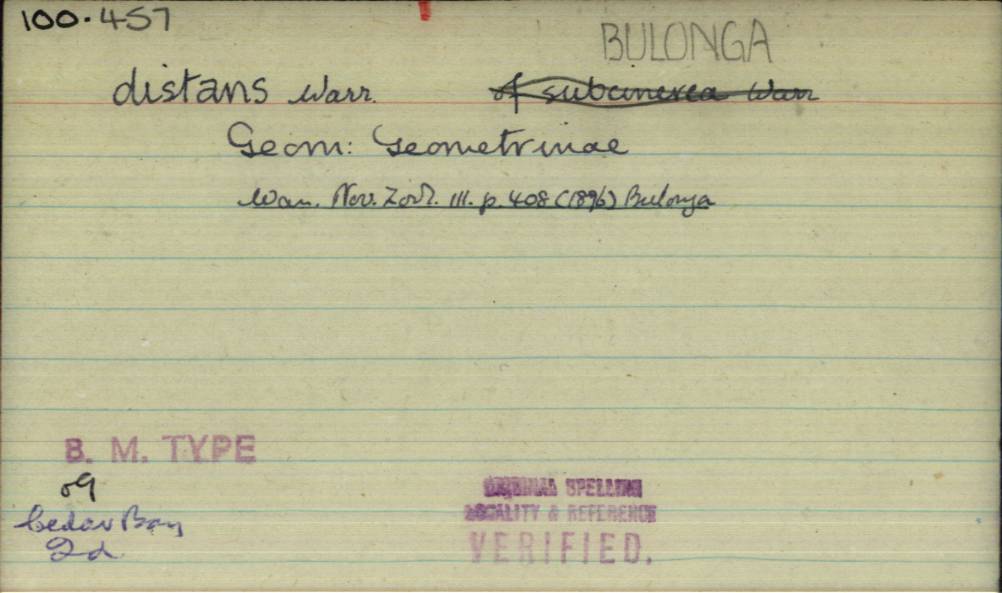 100.457
BULONGA
distans Warr. of subcinerea Warr
Geom: Geometrinae
Warr. Nov. Zool. III. p. 408 (1896) Bulonga
B. M. TYPE
Cedar Bay
Qd
ORIGINAL SPELLING
LOCALITY & REFERENCE
VERIFIED.